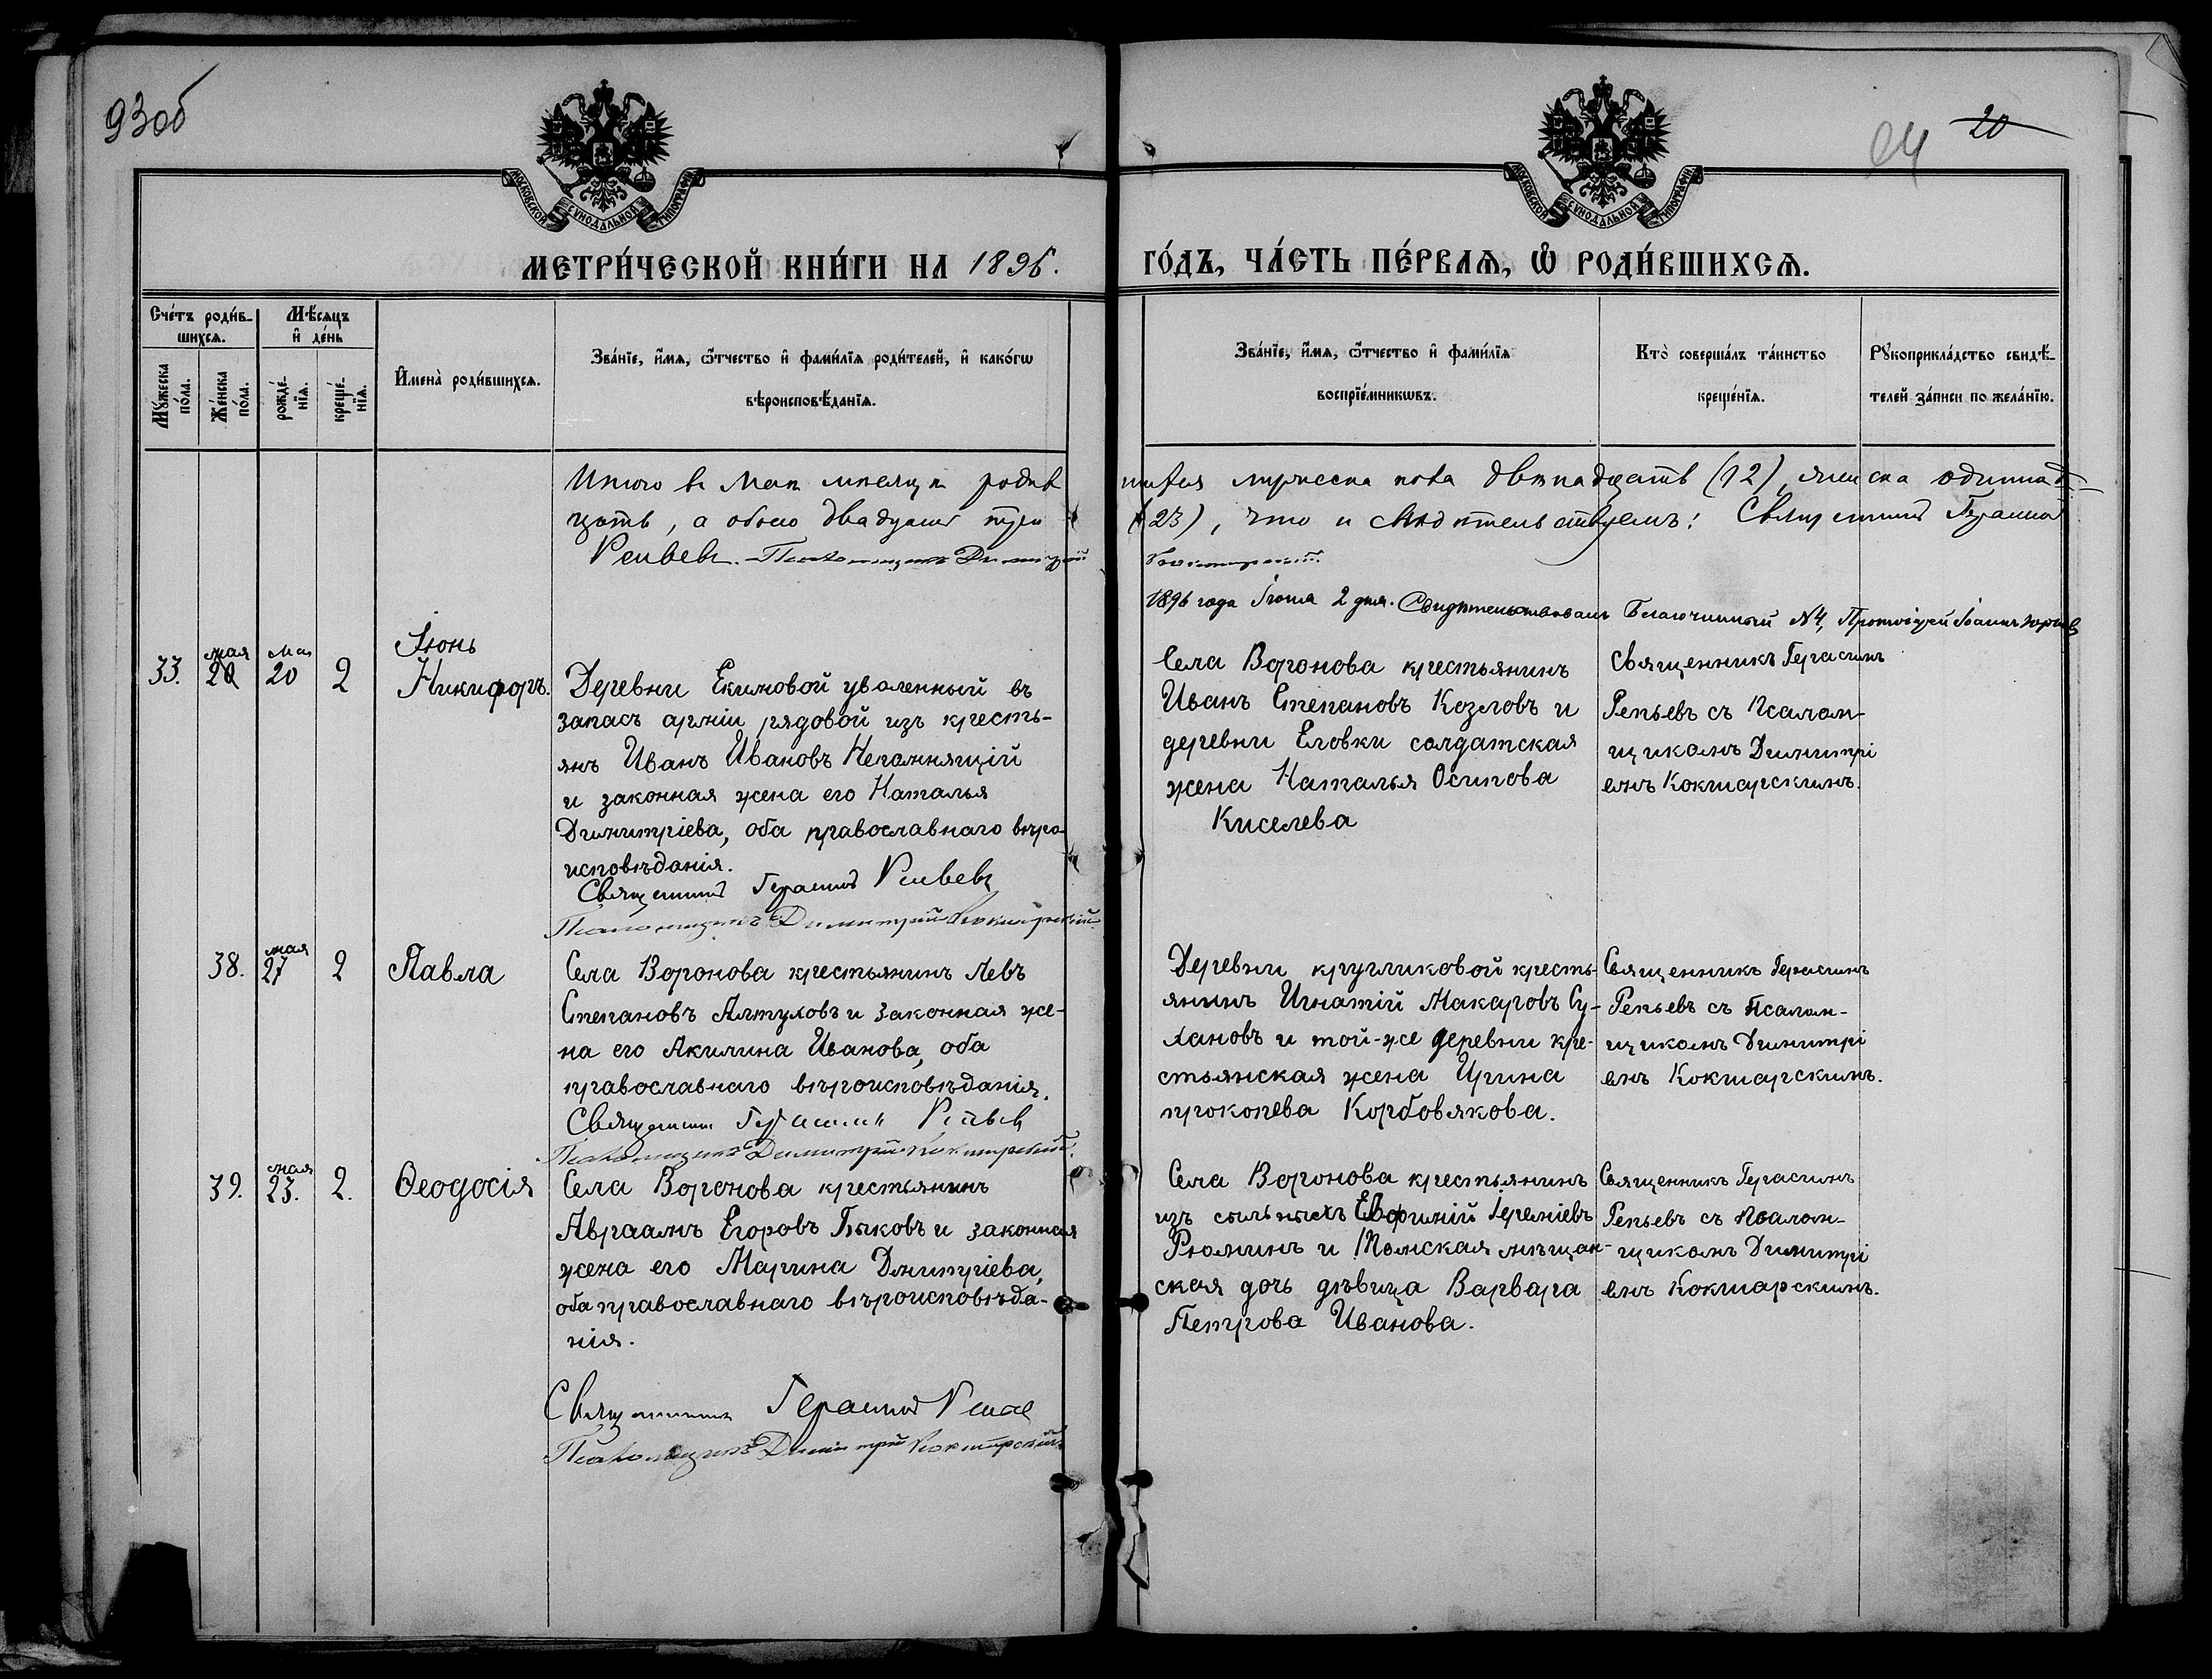 93об
94 20
МОСКОВСКОЙ СѴНОДАЛЬНОЙ ТИПОГРАФІИ
МОСКОВСКОЙ СѴНОДАЛЬНОЙ ТИПОГРАФІИ
МЕТРИ́ЧЕСКОЙ КНИ́ГИ НА 1896.
ГО́ДЪ, ЧА́СТЬ ПЕ́РВАѦ, Ѡ РОДИ́ВШИХСѦ.
Сче́тъ роди́в-
шихсѧ.
Мꙋ́жеска по́ла.
Же́нска по́ла.
Мѣ́сѧцъ
и҆ де́нь
рожде́-нїѧ.
креще́-нїѧ.
И҆мена̀ роди́вшихсѧ.
Зва́нїе, и҆́мѧ, ѻ҆́тчество и҆ фами́лїѧ роди́телей, и҆ како́гѡ
вѣроисповѣ́данїѧ.
Зва́нїе, и҆́мѧ, ѻ҆́тчество и҆ фами́лїѧ
воспрїе́мникѡвъ.
Кто̀ соверша́лъ та́инство
креще́нїѧ.
Рꙋкоприкла́дство свидѣ́-
телей за́писи по жела́нїю.
Итого въ Маѣ мѣсяцѣ родив
шихся мужеска пола двѣнадцать (12), женска одиннад-
цать, а обоего двадцать три
(23), что и свидѣтельствуемъ: Священникъ Герасимъ
Репьевъ. Псаломщикъ Димитрій
Кокшарскій.
1896 года Іюня 2 дня. Свидѣтельствовалъ Благочинный № 4, Протоіерей Іоаннъ
Іюнь
33. мая 20 мая 20 2 Никифоръ.
Деревни Екимовой уволенный въ
запасъ арміи рядовой изъ кресть-
янъ Иванъ Ивановъ Непомнящій
и законная жена его Наталья
Димитріева, оба православнаго вѣро-
исповѣданія.
Священникъ Герасимъ Репьевъ
Псаломщикъ Димитрій Кокшарскій.
Села Воронова крестьянинъ
Иванъ Степановъ Козловъ и
деревни Еловки солдатская
жена Наталья Осипова
Киселева
Священникъ Герасимъ
Репьевъ съ Псалом-
щикомъ Димитрі
емъ Кокшарскимъ.
38. мая 27 2 Павла
Села Воронова крестьянинъ Левъ
Степановъ Алтуховъ и законная же-
на его Акилина Иванова, оба
православнаго вѣроисповѣданія.
Священникъ Герасимъ Репьевъ
Псаломщикъ Димитрій Кокшарскій.
Деревни кругликовой кресть-
янинъ Игнатій Макаровъ Су-
хановъ и той-же деревни кре-
стьянская жена Ирина
прокопева Корбовякова.
Священникъ Герасимъ
Репьевъ съ Псалом-
щикомъ Димитрі
емъ Кокшарскимъ.
39. мая 23. 2. Ѳеодосія
Села Воронова крестьянинъ
Авраамъ Егоровъ Быковъ и законная
жена его Марина Дмитріева,
оба православнаго вѣроисповѣда-
нія.
Священникъ Герасимъ Репьевъ
Псаломщикъ Димитрій Кокшарскій
Села Воронова крестьянинъ
изъ ссыльныхъ Евфимій Іереміевъ
Рюминъ и Томская мѣщан-
ская дочь дѣвица Варвара
Петрова Иванова.
Священникъ Герасимъ
Репьевъ съ Псалом-
щикомъ Димитрі
емъ Кокшарскимъ.